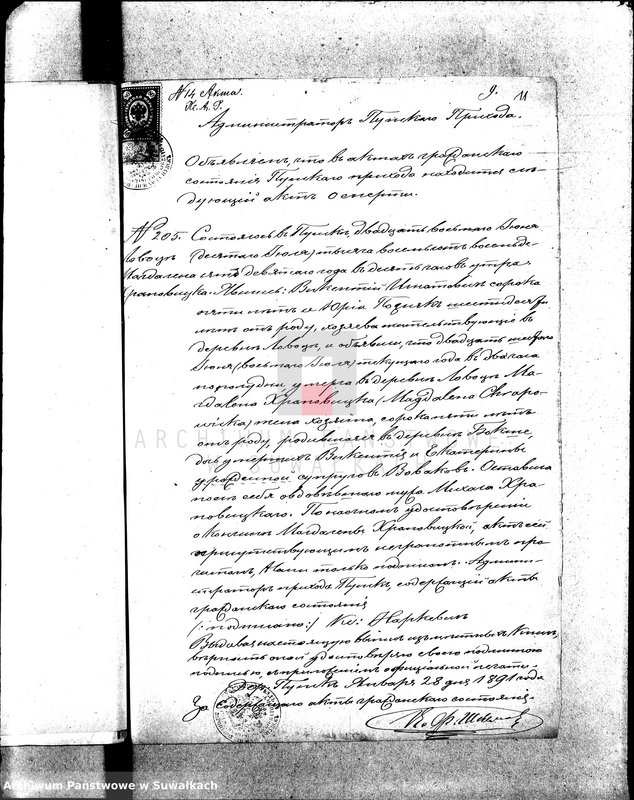 № 14 Акта.
К. А. Г.
9. 11
Администраторъ Пунскаго Прихода.
Объявляетъ, что въ актахъ гражданскаго
состоянія Пунскаго прихода находится слѣ-
дующій актъ о смерти.
№ 205. Состоялось въ Пунскѣ, двадцать восьмаго Іюня
(десятаго Іюля) тысяча восемьсотъ восемьде-
Магдалена сятъ девятаго года въ десять часовъ утра.
Храповицка. Явились: Викентій Игнатовичъ сорока
пяти лѣтъ и Юрій шестидесяти
лѣтъ отъ роду, хозяева жительствующіе въ
деревнѣ Ловоцѣ, и объявили, что двадцать шестаго
Іюня (восьмаго Іюля) текущаго года въ два часа
пополудни, умерла въ деревнѣ Ловоцѣ Ма-
гдалена Храповицка (Магдалена
) жена хозяина, сорока пяти лѣтъ
отъ роду, родившаяся въ деревнѣ
дочь умершихъ Викентія и Екатерины
урожденной супруговъ Воваковъ. Оставила
послѣ себя овдовѣвшаго мужа Михала Хра-
повицкаго. По наочномъ удостовѣреніи
о кончинѣ Магдалены Храповицкой, актъ сей
присутствующимъ неграмотнымъ про-
читанъ, Нами только подписанъ. Админи-
страторъ прихода Пунскъ, содержащій акты
гражданскаго состоянія
(: подписано:) Кс: Наркевичъ
Выдавая настоящую выпись изъ книгъ,
вѣрность оной удостовѣряю своею подлинною
подписью, съ приложеніемъ оффиціальной печати.
Дер. Пунскъ Января 28 дня 1891 года
За содержащаго акты гражданскаго состоянія
ARCHIWUM PAŃSTWOWE
SUWAŁKI
Archiwum Państwowe w Suwałkach